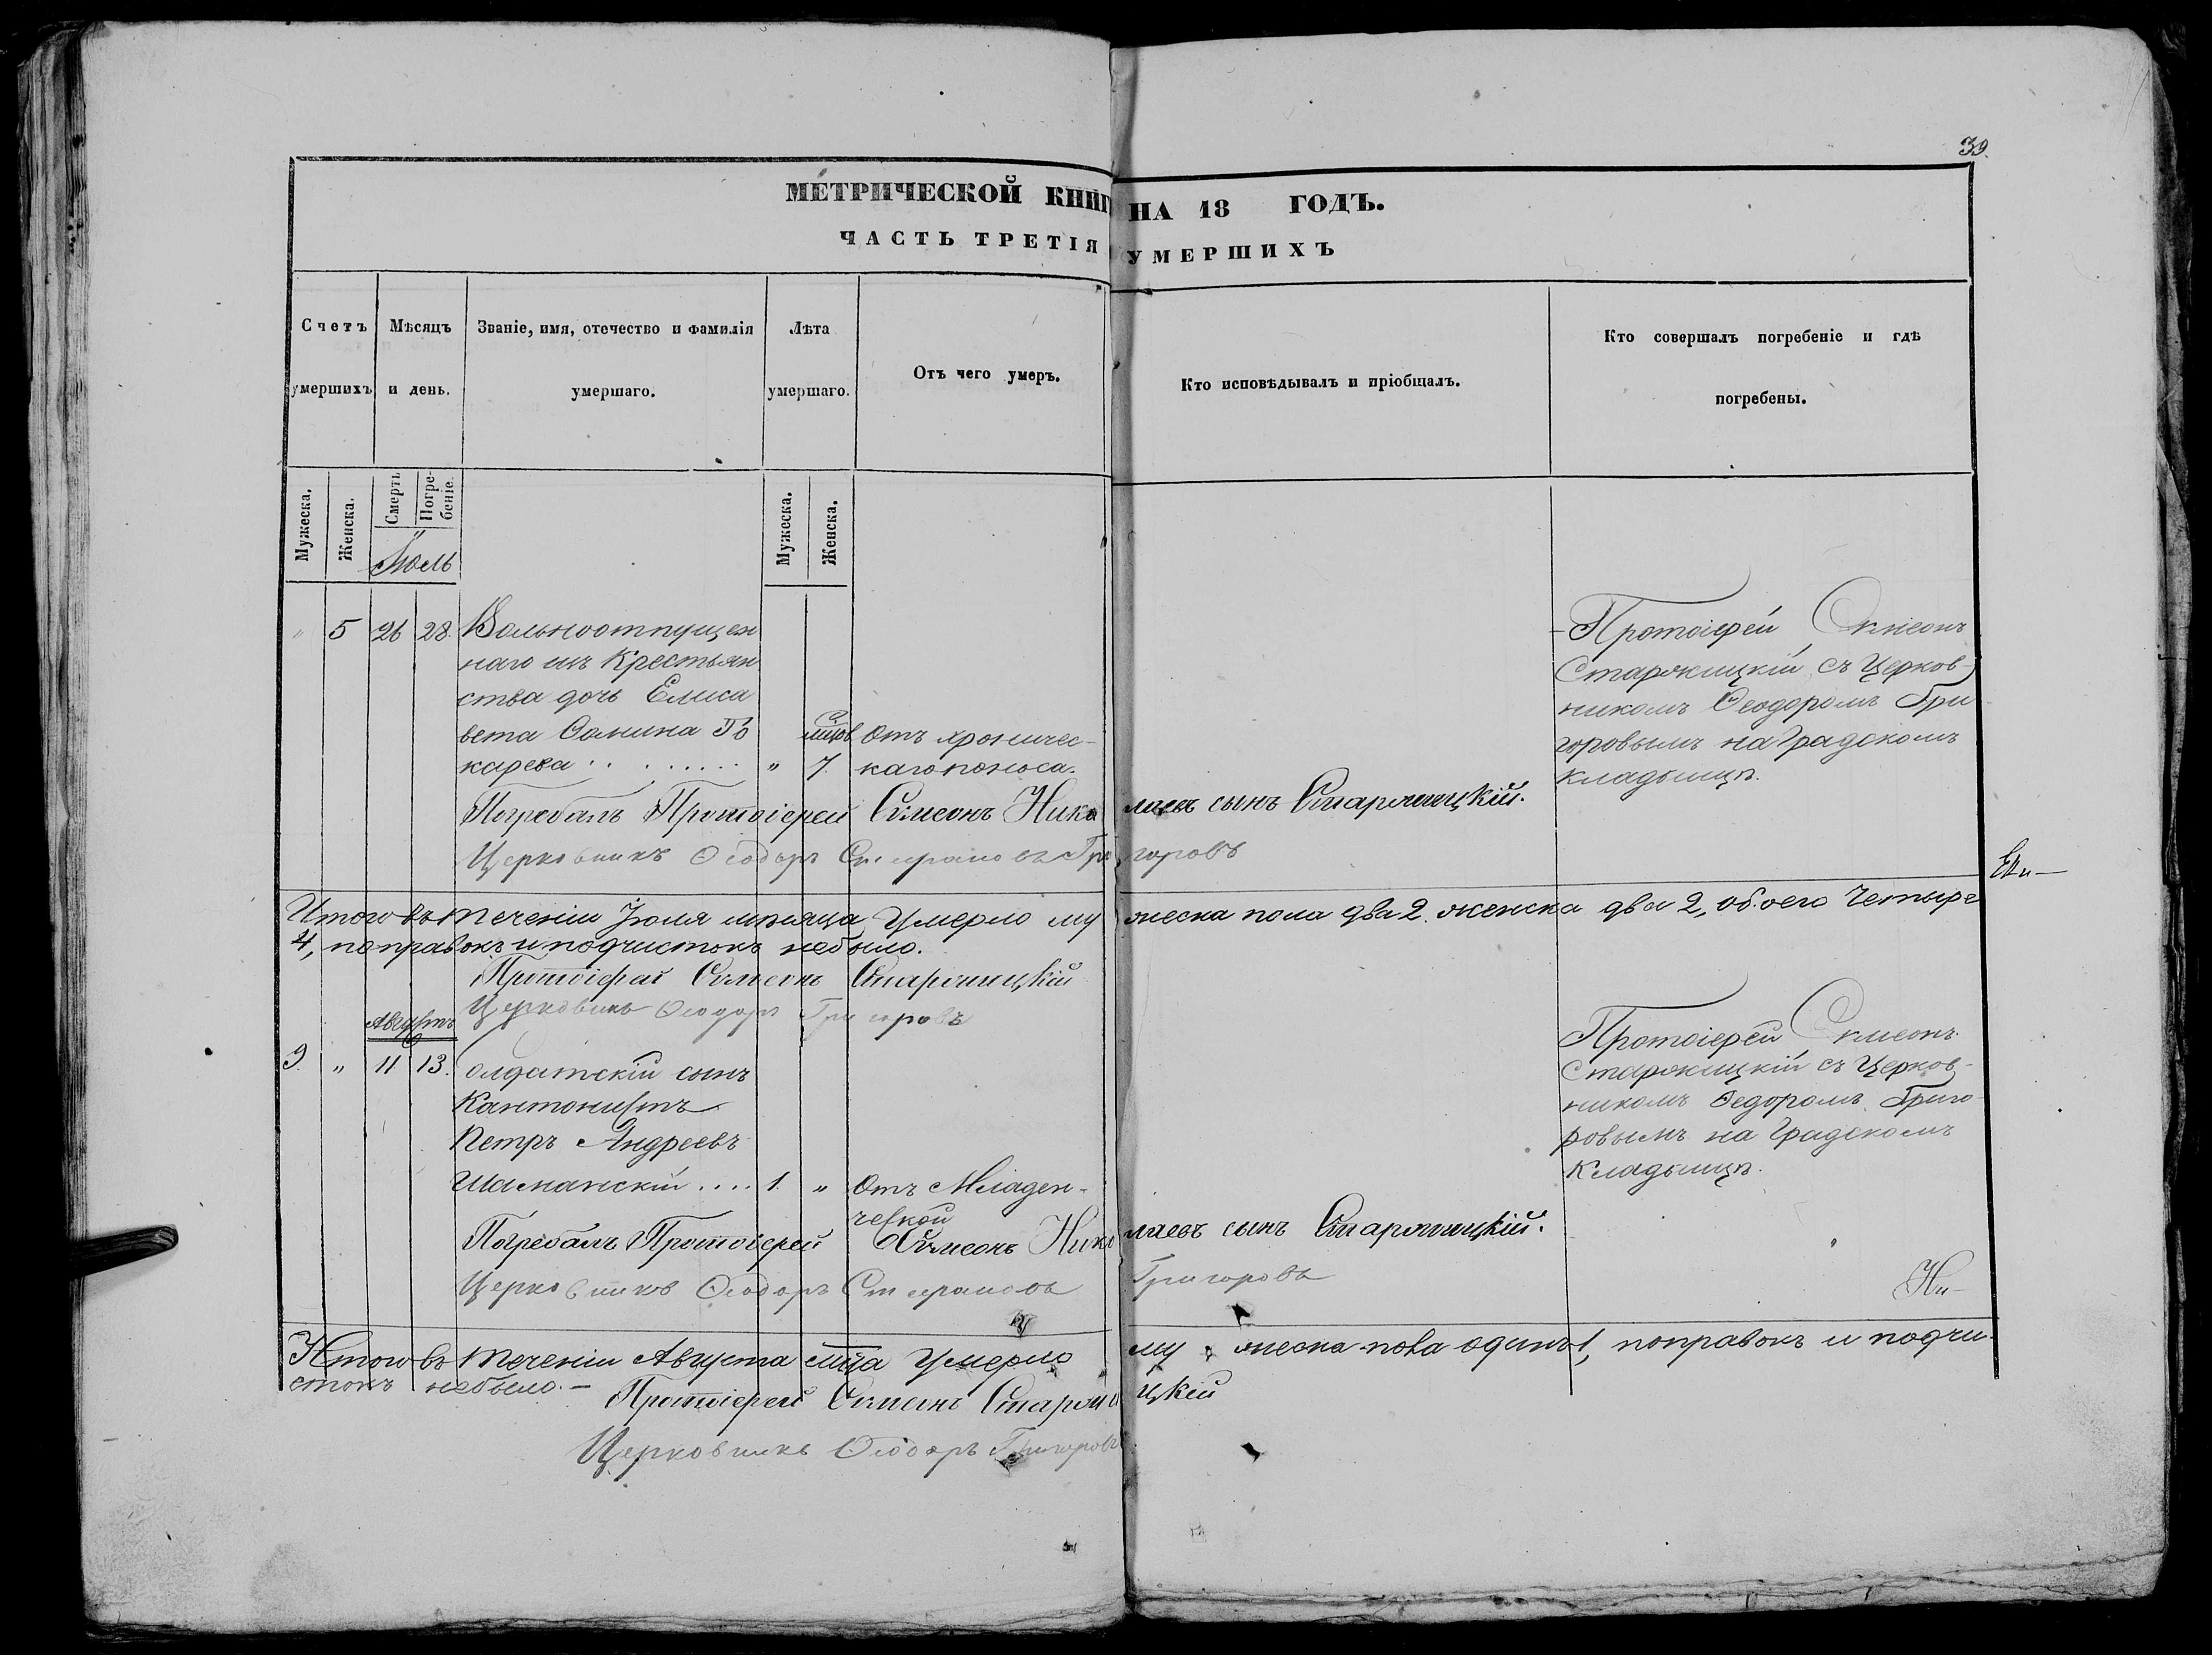 39.
МЕТРИЧЕСКОЙ КНИГ НА 18 ГОДЪ.
ЧАСТЬ ТРЕТІЯ УМЕРШИХЪ
Счетъ умершихъ
Мѣсяцъ и день.
Званіе, имя, отечество и фамилія умершаго.
Лѣта умершаго.
Отъ чего умеръ.
Кто исповѣдывалъ и пріобщалъ.
Кто совершалъ погребеніе и гдѣ погребены.
Мужеска.
Женска.
Смерть
Погребеніе.
Мужеска.
Женска.
Іюль
" 5 26 28. Вольноотпущен
наго изъ Крестьян
ства дочь Елиса
вета
карева . . . . . . . . " 7.
Отъ хроничес-
каго поноса.
Протоіерей Симеонъ
Старжицкій съ Церков-
никомъ Ѳеодоромъ Гри
горовымъ на Градскомъ
кладбищѣ.
Погребалъ Протоіерей Симеонъ Никo лаевъ сынъ Старжицкій.
Церковникъ Ѳеодоръ Григоровъ
Итого въ теченіи Іюля мѣсяца Умерло му жеска пола два 2. женска два 2, обоего Четыре
4, поправокъ и подчистокъ небыло.
Протоіерей Симеонъ Старжицкій
Церковникъ Ѳеодоръ Григоровъ
Августъ
9. " 11 13. Солдатскій сынъ
Кантонистъ
Петръ Андреевъ
Шаманскій .... 1. "
Отъ Младен-
ческой
Протоіерей Симеонъ
Старжицкій съ Церков-
никомъ Ѳедоромъ Григо
ровымъ на Градскомъ
Кладбищѣ.
Погребалъ Протоіерей Симеонъ Нико лаевъ сынъ Старжицкій.
Церковникъ Ѳеодоръ Григоровъ
Итого въ теченіи Августа мца Умерло му жеска пола одинъ 1, поправокъ и подчи-
стокъ небыло.-
Протоіерей Симеонъ Старжицкій
Церковникъ Ѳеодоръ Григоровъ